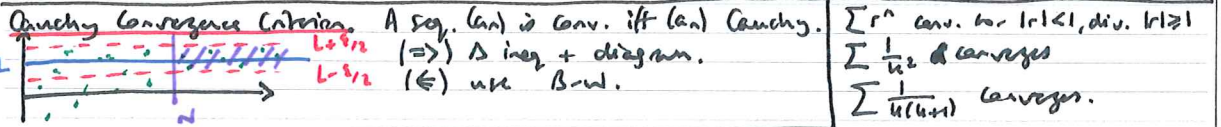 Cauchy Convergence Criterion. A seq. (an) is conv. iff (an) Cauchy.
L+ε/2
L
L-ε/2
N
(=>) Δ ineq + diagram.
(⇐) use B-W.
∑ rⁿ conv. for |r|<1, div. |r|≥1
∑ 1/n² converges
∑ 1/n(n+1) converges.